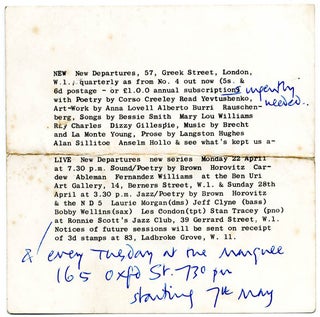 NEW New Departures, 57, Greek Street, London,
W.1., quarterly as from No. 4 out now (5s. &
6d postage - or £1.0.0 annual subscriptions urgently
with Poetry by Corso Creeley Read Yevtushenko, needed..
Art-Work by Anna Lovell Alberto Burri Rauschen-
berg, Songs by Bessie Smith Mary Lou Williams
Ray Charles Dizzy Gillespie, Music by Brecht
and La Monte Young, Prose by Langston Hughes
Alan Sillitoe Anselm Hollo & see what's kept us a-
LIVE New Departures new series Monday 22 April
at 7.30 p.m. Sound/Poetry by Brown Horovitz Car-
dew Ableman Fernandez Williams at the Ben Uri
Art Gallery, 14, Berners Street, W.1. & Sunday 28th
April at 3.30 p.m. Jazz/Poetry by Brown Horovitz
& the N D 5 Laurie Morgan(dms) Jeff Clyne (bass)
Bobby Wellins(sax) Les Condon(tpt) Stan Tracey (pno)
at Ronnie Scott's Jazz Club, 39 Gerrard Street, W.1.
Notices of future sessions will be sent on receipt
of 3d stamps at 83, Ladbroke Grove, W. 11.
& every Tuesday at the Marquee
165 Oxfd St. - 730 pm
starting 7th May